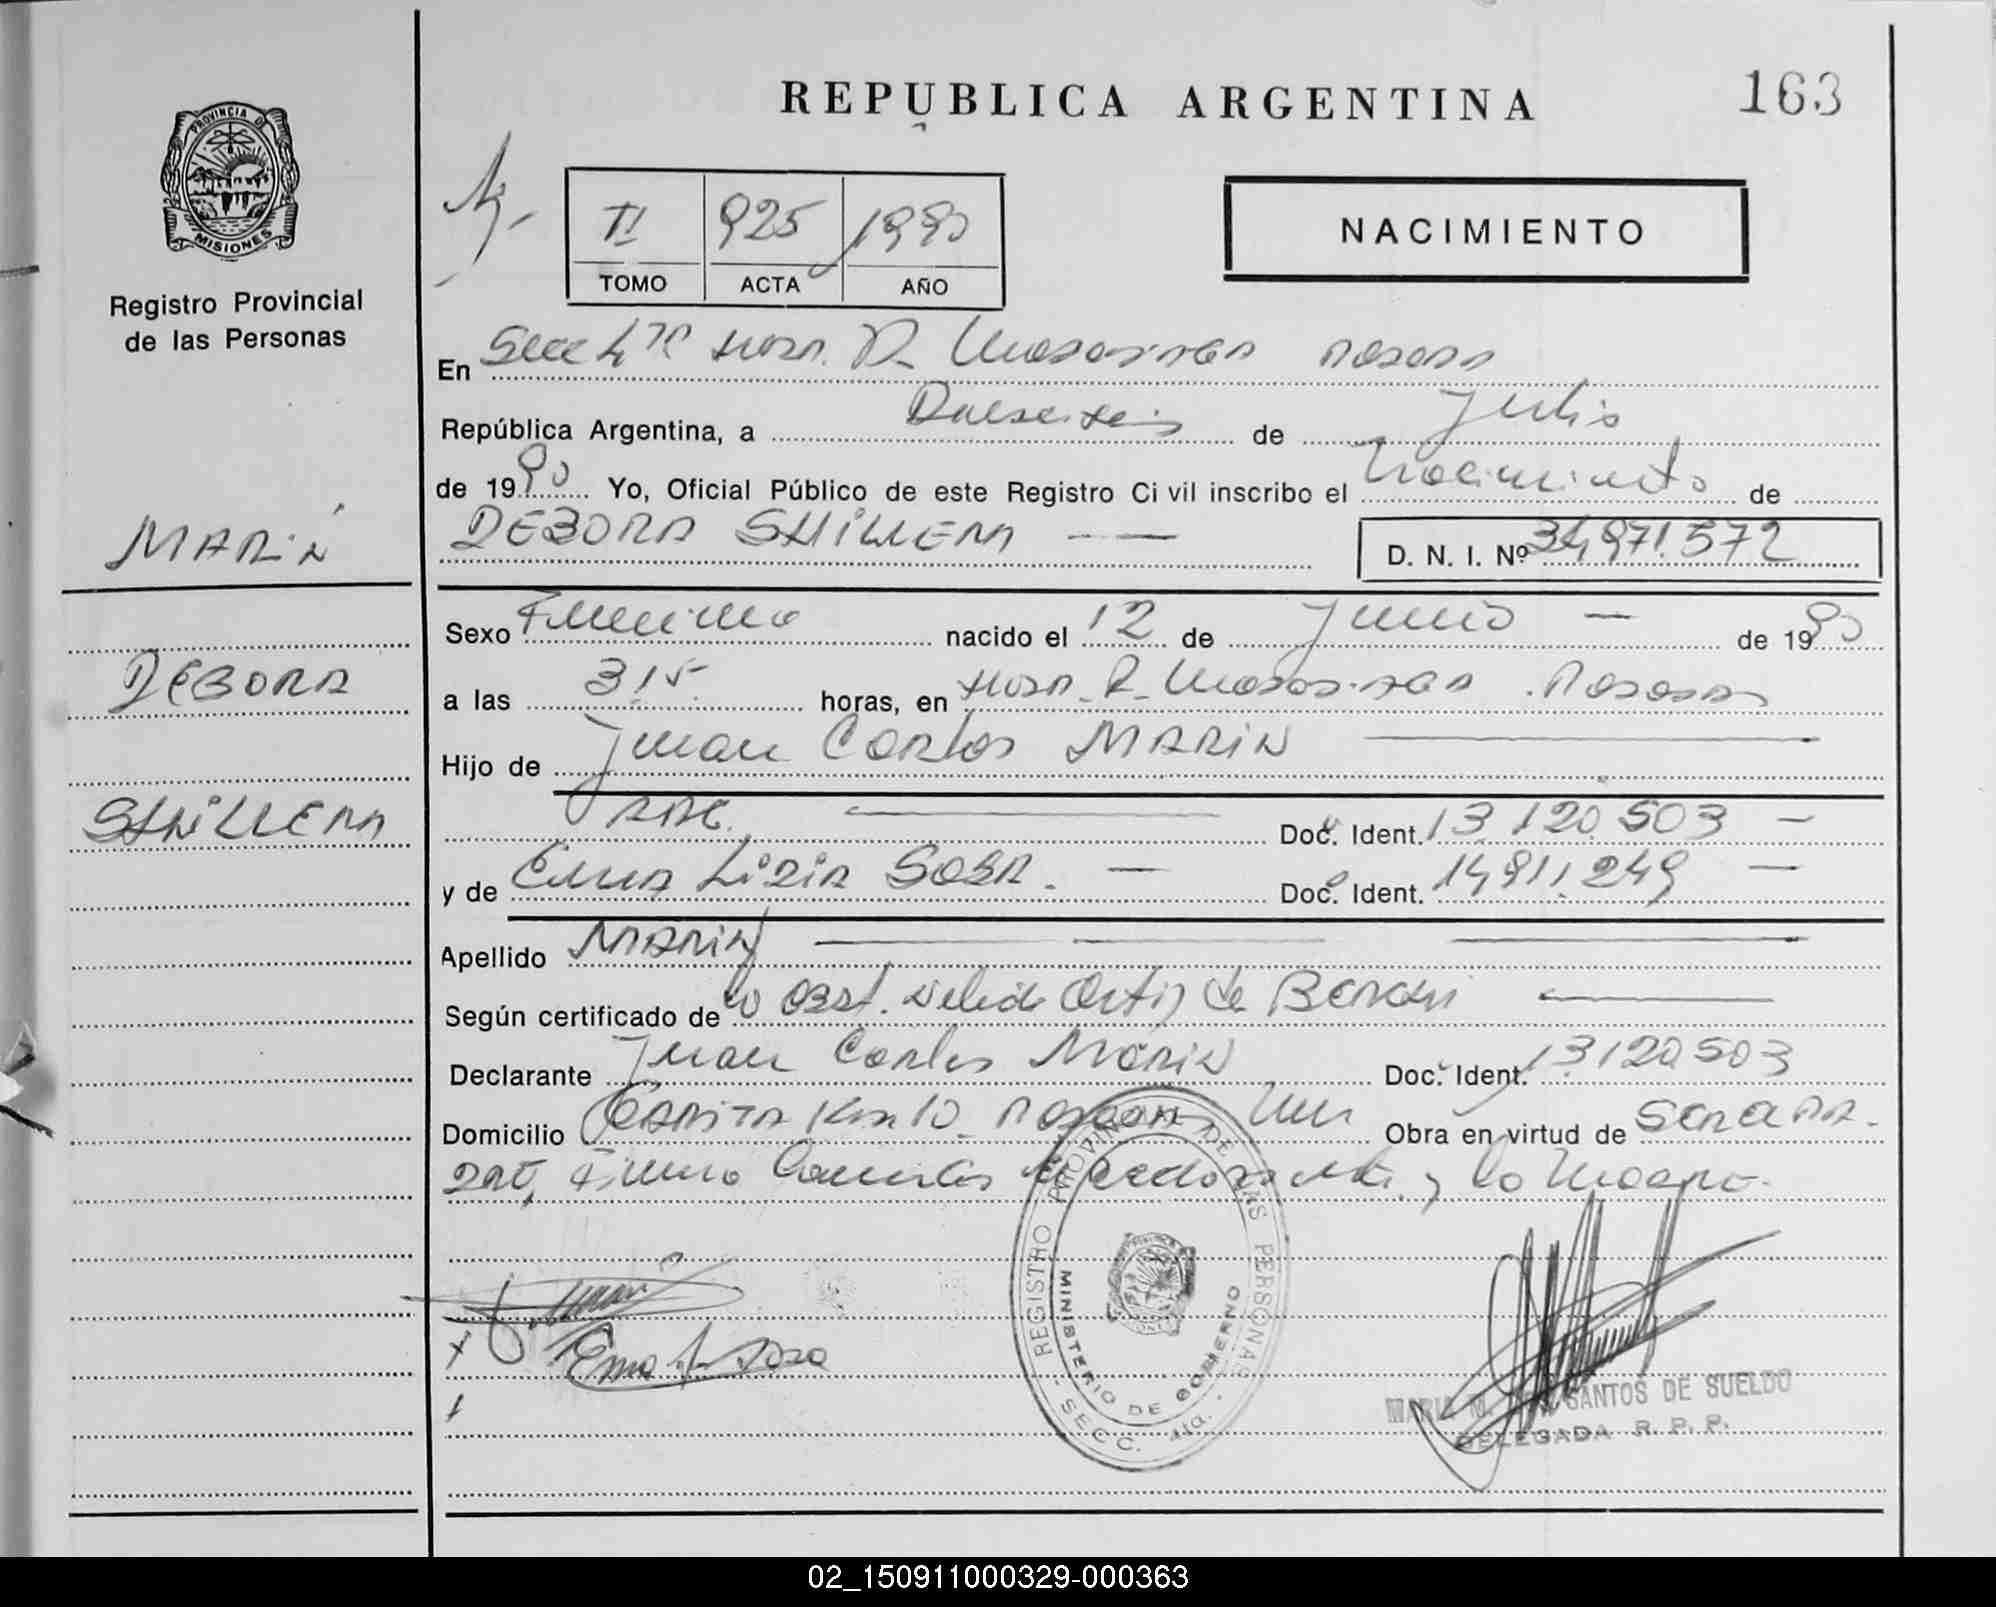 REPUBLICA ARGENTINA
163
PROVINCIA DE
MISIONES
Registro Provincial
de las Personas
II 925 1990
TOMO ACTA AÑO
NACIMIENTO
En Secc 4ta Hosp. R. Madariaga Posadas
República Argentina, a Dieciseis de Julio
de 1990 Yo, Oficial Público de este Registro Civil inscribo el Nacimiento de
DEBORA D. N. I. Nº 34.971.572
MARIN
DEBORA
Sexo Femenino nacido el 12 de Junio — de 1990
a las 315 horas, en Hosp. R. Madariaga. Posadas
Hijo de Juan Carlos MARIN
Doc. Ident. 13.120.503 —
y de Ema Lidia SOSA. — Doc. Ident. 14.911.249 —
Apellido MARIN
Según certificado de la Obst. Nelida Ortiz de
Declarante Juan Carlos Marin Doc. Ident. 13120503
Domicilio Posadas Obra en virtud de
Firma y la Madre.
Ema L. Sosa
REGISTRO PROVINCIAL DE LAS PERSONAS
MINISTERIO DE GOBIERNO
- SECC. 4ta. -
MARIA SANTOS DE SUELDO
DELEGADA R. P. P.
02_150911000329-000363